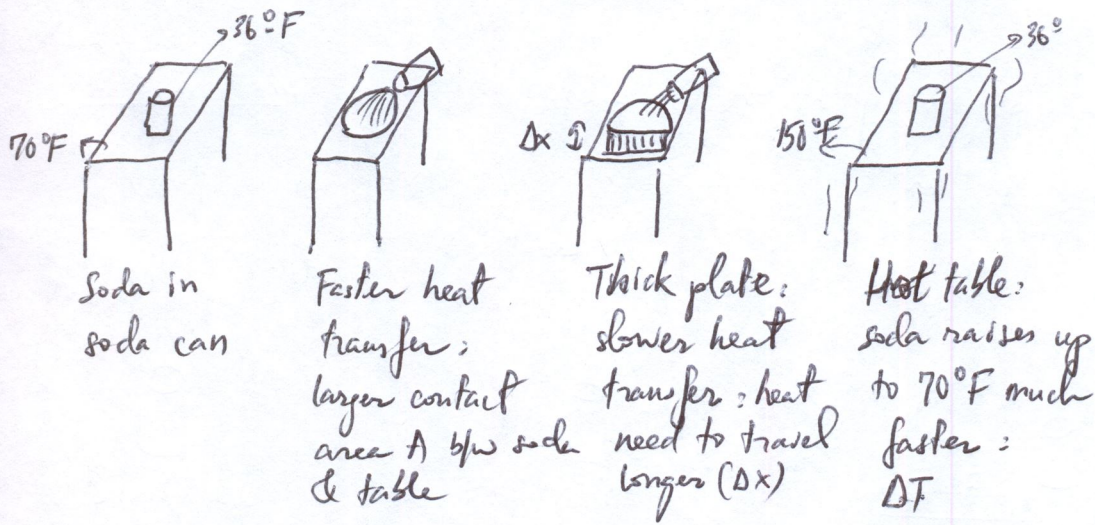 36°F
70°F
Soda in
soda can
Faster heat
transfer:
larger contact
area A b/w soda
& table
Δx
Thick plate:
slower heat
transfer: heat
need to travel
longer (Δx)
36°
150°F
Hot table:
soda raises up
to 70°F much
faster:
ΔT